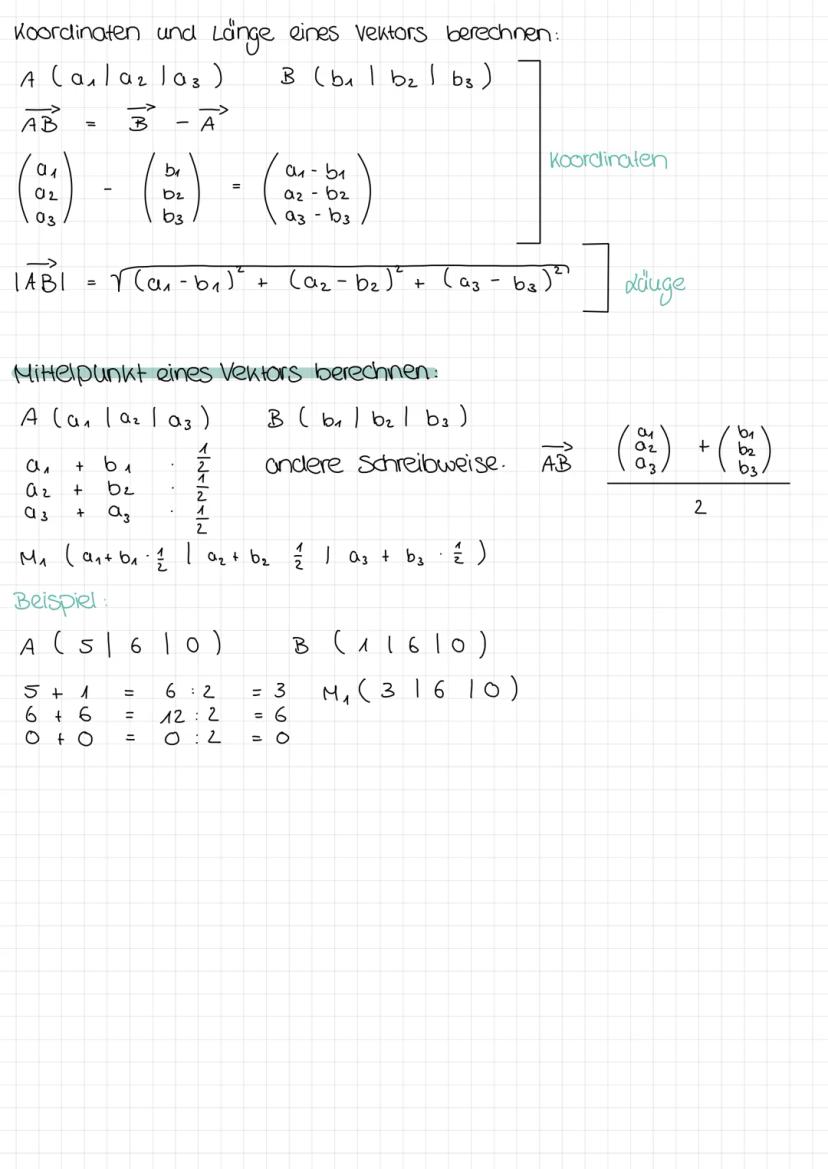 Koordinaten und Länge eines Vektors berechnen:
A (a₁ | a₂ | a₃) B (b₁ | b₂ | b₃)
→AB = →B - →A
(a₁ a₂ a₃) - (b₁ b₂ b₃) = (a₁ - b₁ a₂ - b₂ a₃ - b₃)
Koordinaten
|→AB| = √(a₁ - b₁)² + (a₂ - b₂)² + (a₃ - b₃)²
Länge
Mittelpunkt eines Vektors berechnen:
A (a₁ | a₂ | a₃) B (b₁ | b₂ | b₃)
a₁ + b₁ · 1/2 andere Schreibweise. →AB ((a₁ a₂ a₃) + (b₁ b₂ b₃))/2
a₂ + b₂ · 1/2
a₃ + a₃ · 1/2
M₁ (a₁ + b₁ · 1/2 | a₂ + b₂ 1/2 | a₃ + b₃ · 1/2)
Beispiel:
A (5 | 6 | 0) B (1 | 6 | 0)
5 + 1 = 6 : 2 = 3 M₁ (3 | 6 | 0)
6 + 6 = 12 : 2 = 6
0 + 0 = 0 : 2 = 0